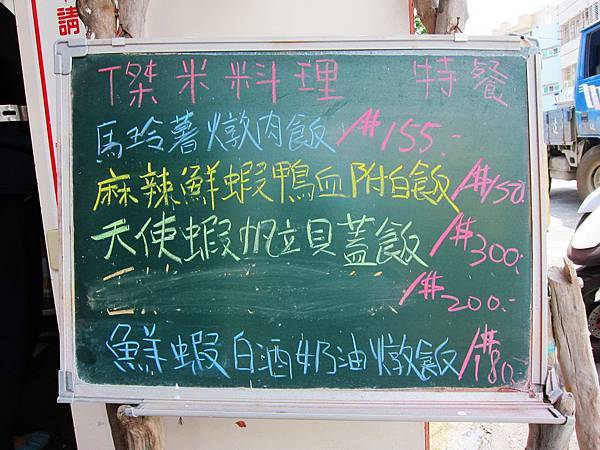 請
T傑米料理 特餐
馬玲薯燉肉飯 #155.-
麻辣鮮蝦鴨血附白飯 #150.
天使蝦帆立貝蓋飯 #300.-
#200.-
鮮蝦白酒奶油燉飯 #180